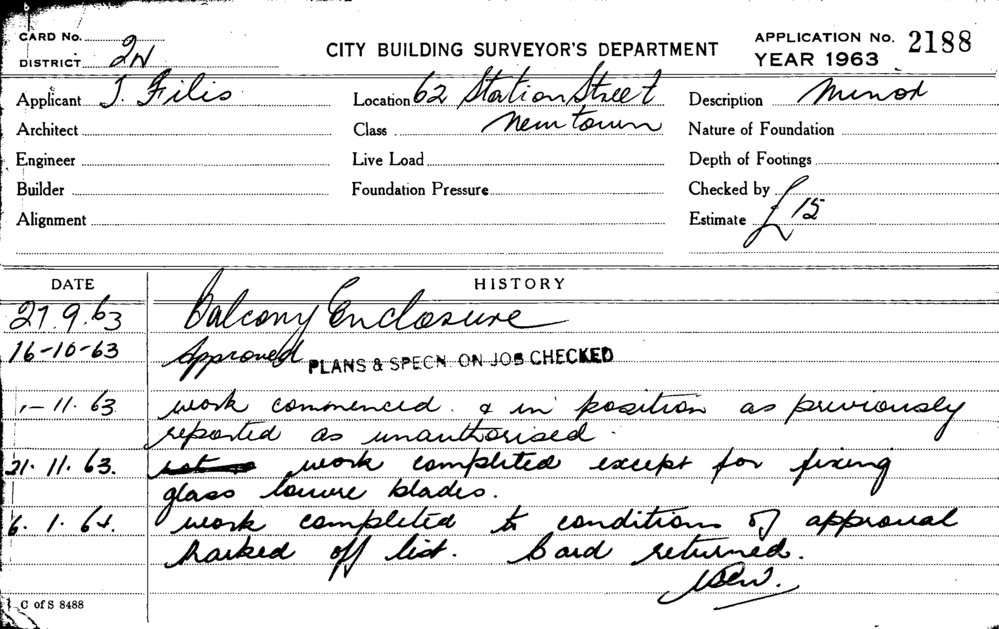 CARD No.
DISTRICT 2N
CITY BUILDING SURVEYOR'S DEPARTMENT
APPLICATION No. 2188
YEAR 1963
Applicant J. Filis
Location 62 Station Street
Description Minor
Architect
Class Newtown
Nature of Foundation
Engineer
Live Load
Depth of Footings
Builder
Foundation Pressure
Checked by
Alignment
Estimate £15
DATE
HISTORY
27.9.63 Balcony Enclosure
16-10-63 Approved PLANS & SPECN. ON JOB CHECKED
1-11.63 work commenced. & in position as previously
reported as unauthorised.
21.11.63. work completed except for fixing
glass louvre blades.
6.1.64. work completed to conditions of approval
marked off list. Card returned.
C of S 8488